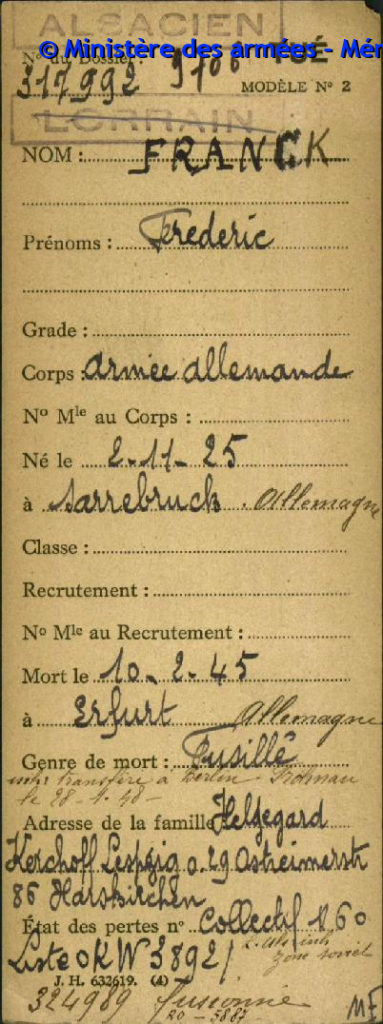 ALSACIEN
© Ministère des armées - Mém
TUÉ
No du Dossier :
317992
MODÈLE No 2
LORRAIN
NOM : FRANCK
Prénoms : Frederic
Grade :
Corps : armée allemande
No Mle au Corps :
Né le 2-11-25
à Sarrebruck Allemagne
Classe :
Recrutement :
No Mle au Recrutement :
Mort le 10-2-45
à Erfurt Allemagne
Genre de mort : Fusillé
transfère à Berlin Frohnau
le 28-1-48
Adresse de la famille Heldegard
Kerchoff Leipzig o. 29 Ostreimerstr
86 Harskirchen
État des pertes no collectif 160
Liste OKW 3892/
zone soviet
J. H. 632619. (4)
324989 fusionnée
20-5887